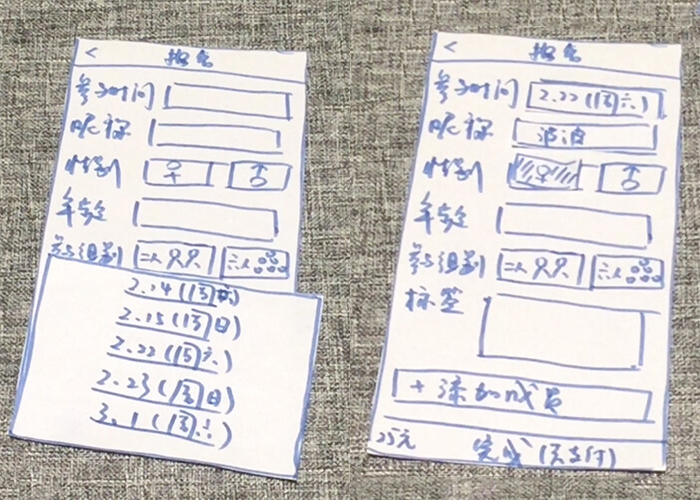 < 报名
参与时间
昵称
性别 ♀ ♂
年龄
参与组别 二人 六人
2.14(周六)
2.15(周日)
2.22(周六)
2.23(周日)
3.1(周六)
< 报名
参与时间 2.22(周六)
昵称 波波
性别 ♀ ♂
年龄
参与组别 二人 六人
标签
+ 添加成员
25元 完成(去支付)